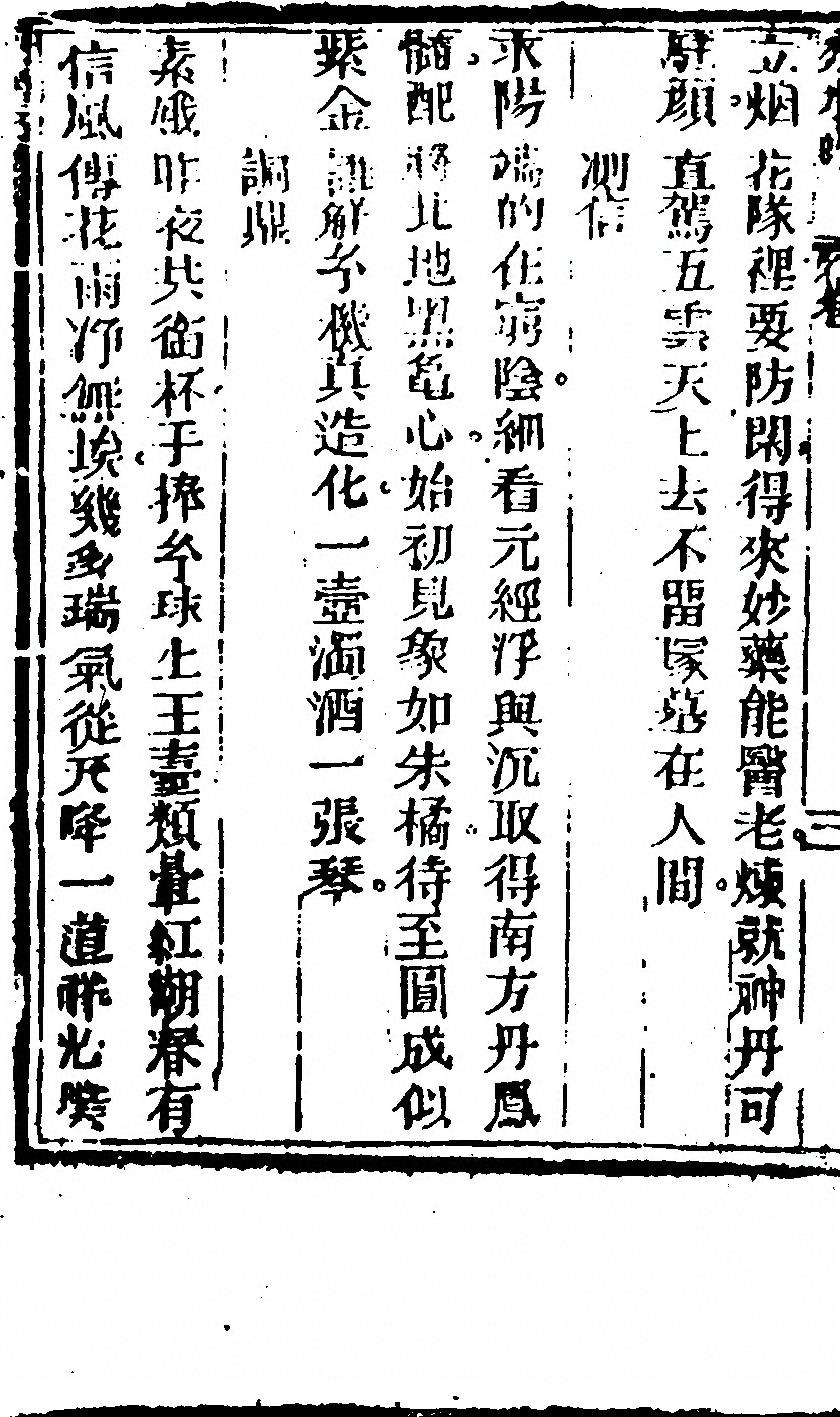 立烟花隊裡要防閑得來妙藥能醫老煉就神丹可
駐顔直駕五雲天上去不畱塚墓在人間
測信
求陽端的在窮陰細看元經浮與沉取得南方丹鳳
髓配將北地黑龜心始初見象如朱橘待至圓成似
紫金誰解兮機真造化一壺濁酒一張琴
調鼎
素娥昨夜共銜杯手捧兮球上玉臺類暈紅潮春有
信風傳花雨凈無埃幾多瑞氣從天降一道祥光